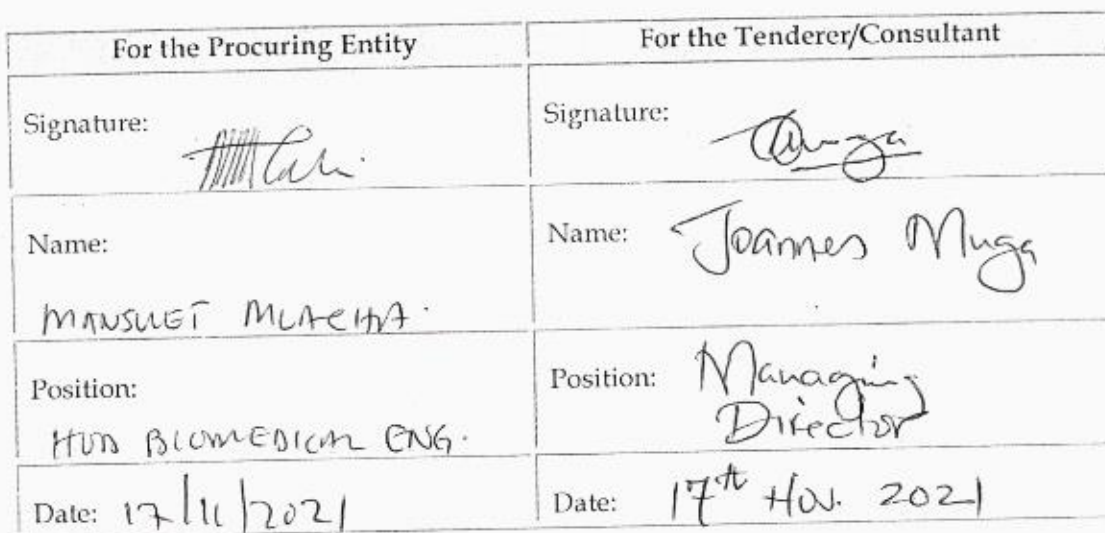 For the Procuring Entity
For the Tenderer/Consultant
Signature:
Signature:
Name:
MANSUET MLACHA.
Name: Joannes Muga
Position:
HOD BIOMEDICAL ENG.
Position: Managing
Director
Date: 17/11/2021
Date: 17th Nov. 2021